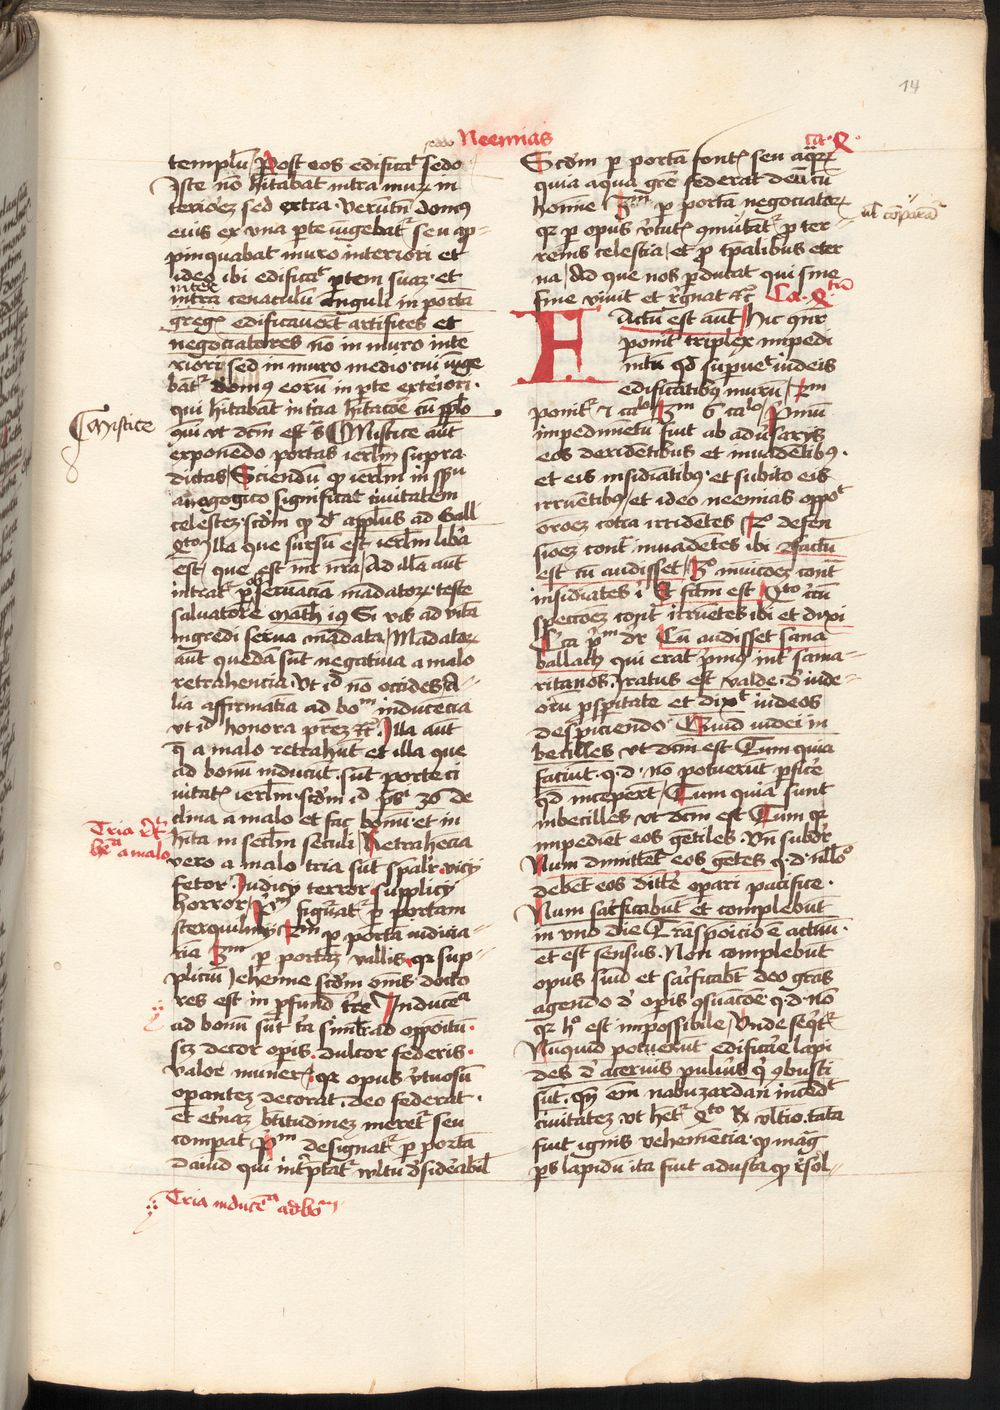 14
Neemias
ca. 4
templū Post eos edificaꝉ sedo
Iste nō hītabat intra muꝝ in
terioꝛeȝ sed extra. Verūtn̄ domꝰ
eius ex vna ꝑte iūgebatᷣ seu ap-
pinquabat muro interiori et
ideo ibi edificatᷣ ꝑtem suaȝ. et
inter
intra cenaculū anguli in porta
greg̅ edificauerūt artifices et
negociatores nō in muro inte
riori sed in muro medio cui iūge
batᷣ domꝰ eorū in ꝑte exteriori.
qui hītabāt in t̄cia hītacōe cū pplo
qui vt dcm̄ est Mistice aūt
Mistice
exponēdo portas ierlm̄ supra
dictas Sciendū ꝙ ierlm̄ in sēsu
anagogico significat ciuitatem
celesteȝ. scdm̄ ꝙ dꝭ applus ad Gall
4to Illa que sursū est ierlm̄ libera
est, que est mr̄ nr̄a, Ad illā aūt
intratᷣ ꝑ obseruanciā mādatoꝝ teste
saluatore Math 19 Si vis ad vitā
ingredi serua mādata, Mādatoꝝ
aūt quedā sūt negatiua a malo
retrahencia. Vt id nō occides A-
lia affirmatia ad bom̄ inducēcia
vt id honora prēȝ Illa aūt
q̄ a malo retrahūt et illa que
ad bonū inducūt. sūt porte ci
uitatꝭ ierlm̄. scdm̄ id ps̄ 36 de
clina a malo et fac bonū. et in
hīta in seclm̄ seculi Retrahēcia
Tria rēt
hēa a malo
vero a malo tria sūt spalr̄. vicij
fetor. Iudicij terror supplicij
horror, pm̄ figuratᷣ ꝑ portam
sterquilinij 2m ꝑ portā iudicia-
riā 3m ꝑ portaȝ vallis. qꝛ sup-
pliciū Iehenne scdm̄ om̄s docto
res est in ꝓfund t̄re Inducēa
ad bonū sūt tria simlr̄ ad oppoitū.
scȝ decor opis. dulcor federis.
valor munerꝭ. qꝛ opus v̄tuosū
operanteȝ decorat. deo federat.
et et̄naȝ btitudineȝ meretᷣ seu
compat pm̄ designatᷣ ꝑ portā
Dauid qui int̄ptatᷣ vultu dsiderabil
Tria inducēa ad bom̄
Scdm̄ ꝑ portā fontꝭ seu aqꝛ
quia aqua gr̄e federat deū cū
homine 3m ꝑ portā negociatoꝝ
qꝛ ꝑ opus v̄tutꝭ 9mutātᷣ ꝑ ter-
renis celestia, et ꝓ tp̄alibus eter
na, Ad que nos ꝑducat qui sine
fine viuit et regnat
Ca. 4tū
Factū est aūt Hic 9nr̄
ponitᷣ triplex impedi
mtū qd̄ supueīt iudeis
edificātibꝰ murū, 2m
ponitᷣ 5 calo 3m 6 calo Primū
impedimētū fuit ab adūsarijs
eos deridentibus et inuidētibꝰ.
et eis insidiātibꝰ. et subito eis
irruentibꝰ, et ideo neemias oppoᷤ
oroeȝ cōtra irridētes 2o defen
sioeȝ cont̄ inuadētes ibi factū
est cū audisset, 3o municōeȝ cont̄
insidiātes Et fcm̄ est 4to circū
speccōeȝ cont̄ irruētes ibi et dixi
Circa pm̄ dr̄ Cū audisset sana
ballath qui erat prīnceps int̄ sama-
ritanos. Iratus est valde. de iude-
orū ꝓspitate et dixit iudeos
despiciendo. Quid iudei in
becilles vt dcm̄ est Tum quia
faciūt. q.d. nō potuerūt ꝑficere
qd̄ inceperūt, Tum quia sunt
inbecilles vt dcm̄ est Tum qꝛ
impediēt eos gētiles. Vn̄ subdr̄
Num dimittēt eos gētes q.d. nllo
debēt eos dittere opari pacifice.
Num sacrificabūt et complebūt
in vno die Traspōicio ē actuū.
et est sensus. Non complebūt
opus suū et sacrificabt̄ deo grās
agendo de opis 9suacōe q.d. nō
qꝛ ho est impossibile, Vnde seqtᷣ
Nunquid potuerūt edificare lapi
des de aceruis pulueris qui 9busti
sūt. qn̄ em̄ nabuzardan incēdit
ciuitateȝ vt hetᷣ 4to Rx vltio. tāta
fuit ignis vehemēcia. ꝙ mag̅
ps̄ lapidū ita fuit adusta ꝙ resol-